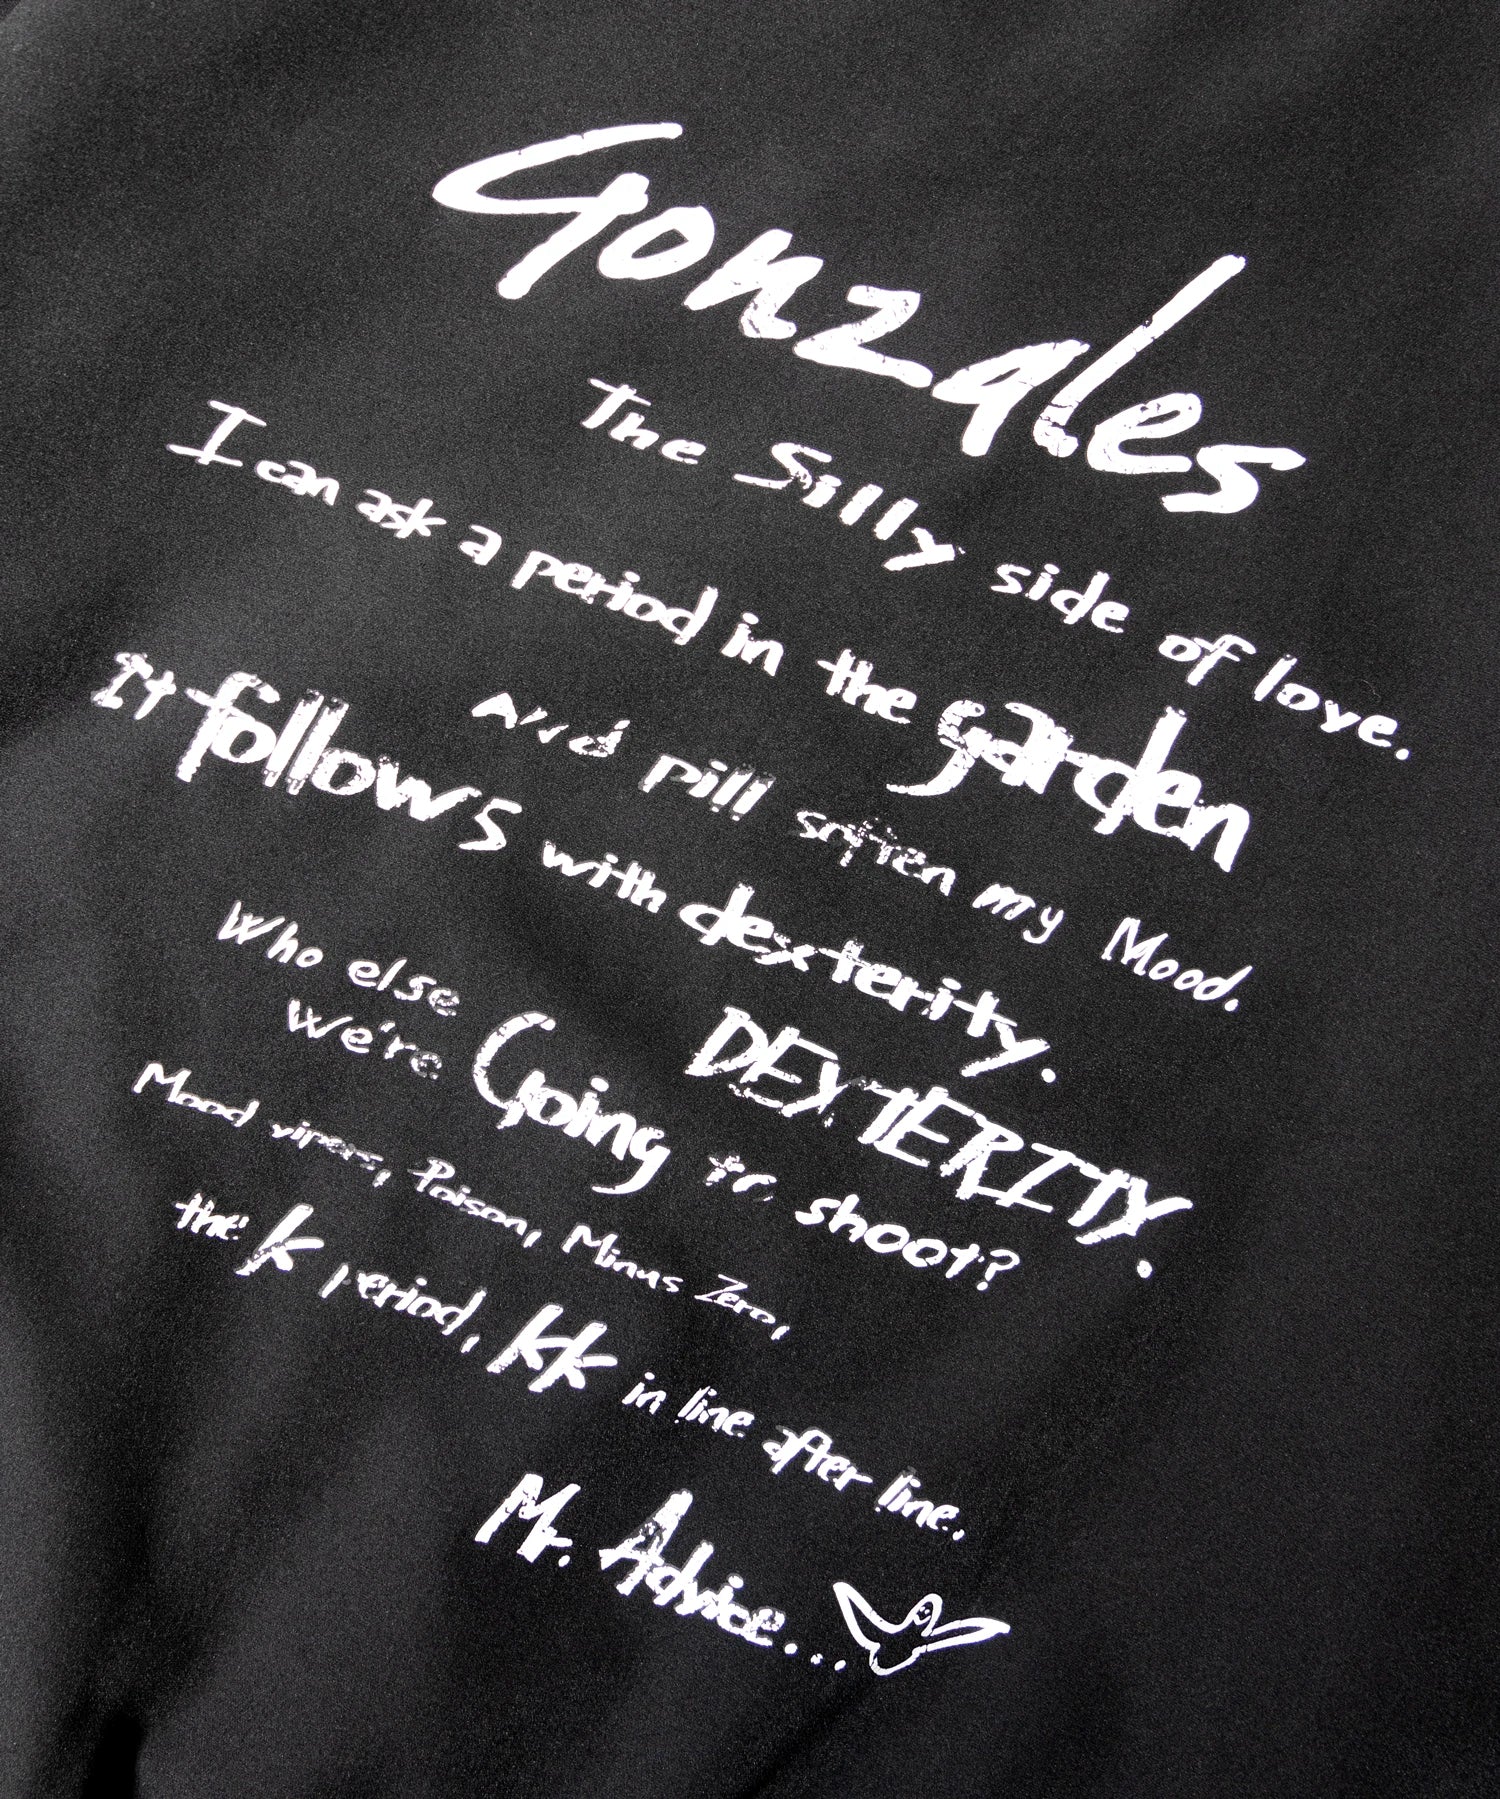 Gonzales
The Silly side of love.
I can ask a period in the garden
And pill soften my Mood.
It follows with dexterity.
DEXTERITY.
Who else
We're Going to shoot?
Mood vipers, Poison, Minus Zero,
the K period, KK in line after line.
Mr. Advice...